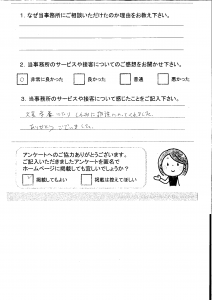 1. なぜ当事務所にご相談いただけたのか理由をお教え下さい。
2. 当事務所のサービスや接客についてのご感想をお聞かせ下さい。
0 非常に良かった 良かった 普通 悪かった
3. 当事務所のサービスや接客について感じたことをご記入下さい。
大変 しんみに 相談にのってくださいました。
ありがとう ございました。
アンケートへのご協力ありがとうございます。
ご記入いただきましたアンケートを匿名で
ホームページに掲載しても宜しいでしょうか?
掲載してもよい 掲載は控えてほしい